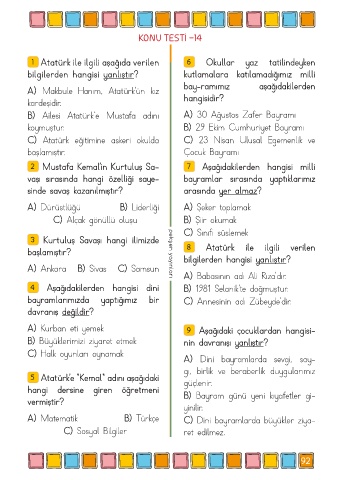 KONU TESTİ -14
1 Atatürk ile ilgili aşağıda verilen
bilgilerden hangisi yanlıştır?
A) Makbule Hanım, Atatürk'ün kız
kardeşidir.
B) Ailesi Atatürk'e Mustafa adını
koymuştur.
C) Atatürk eğitimine askeri okulda
başlamıştır.
2 Mustafa Kemal'in Kurtuluş Sa-
vaşı sırasında hangi özelliği saye-
sinde savaş kazanılmıştır?
A) Dürüstlüğü B) Liderliği
C) Alçak gönüllü oluşu
3 Kurtuluş Savaşı hangi ilimizde
başlamıştır?
A) Ankara B) Sivas C) Samsun
4 Aşağıdakilerden hangisi dini
bayramlarımızda yaptığımız bir
davranış değildir?
A) Kurban eti yemek
B) Büyüklerimizi ziyaret etmek
C) Halk oyunları oynamak
5 Atatürk'e "Kemal" adını aşağıdaki
hangi dersine giren öğretmeni
vermiştir?
A) Matematik B) Türkçe
C) Sosyal Bilgiler
6 Okullar yaz tatilindeyken
kutlamalara katılamadığımız milli
bay-ramımız aşağıdakilerden
hangisidir?
A) 30 Ağustos Zafer Bayramı
B) 29 Ekim Cumhuriyet Bayramı
C) 23 Nisan Ulusal Egemenlik ve
Çocuk Bayramı
7 Aşağıdakilerden hangisi milli
bayramlar sırasında yaptıklarımız
arasında yer almaz?
A) Şeker toplamak
B) Şiir okumak
C) Sınıfı süslemek
8 Atatürk ile ilgili verilen
bilgilerden hangisi yanlıştır?
A) Babasının adı Ali Rıza'dır.
B) 1981 Selanik'te doğmuştur.
C) Annesinin adı Zübeyde'dir.
9 Aşağıdaki çocuklardan hangisi-
nin davranışı yanlıştır?
A) Dini bayramlarda sevgi, say-
gı, birlik ve beraberlik duygularımız
güçlenir.
B) Bayram günü yeni kıyafetler gi-
yinilir.
C) Dini bayramlarda büyükler ziya-
ret edilmez.
92